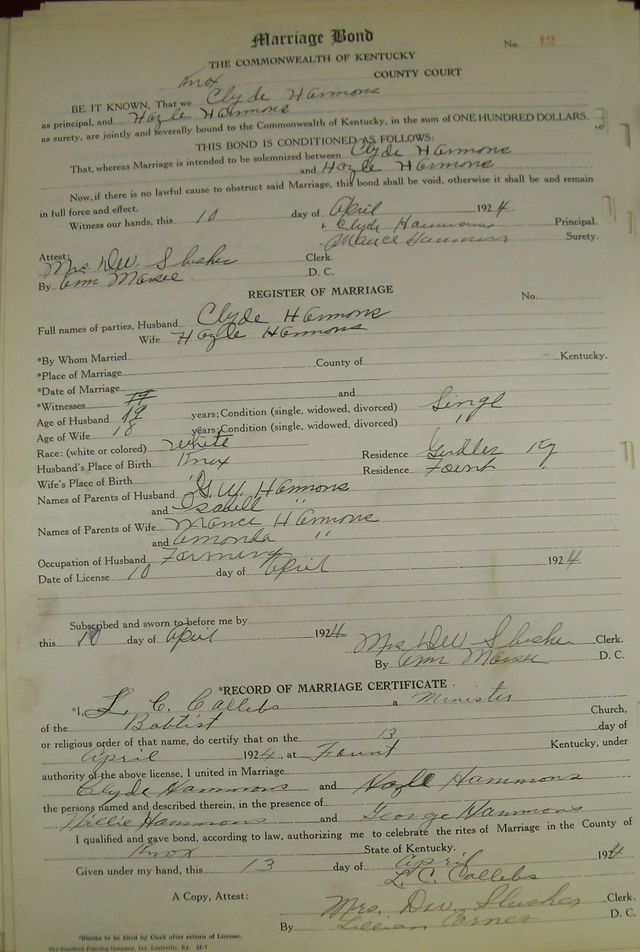 Marriage Bond
No. 12
THE COMMONWEALTH OF KENTUCKY
Knox COUNTY COURT
BE IT KNOWN, That we Clyde Hammons
as principal, and Hazle Hammons
as surety, are jointly and severally bound to the Commonwealth of Kentucky, in the sum of ONE HUNDRED DOLLARS.
THIS BOND IS CONDITIONED AS FOLLOWS:
That, whereas Marriage is intended to be solemnized between Clyde Hammons
and Hazle Hammons
Now, if there is no lawful cause to obstruct said Marriage, this bond shall be void, otherwise it shall be and remain
in full force and effect.
Witness our hands, this 10 day of April 1924.
Clyde Hammons Principal.
Hammons Surety.
Attest:
Mrs. DW Slusher Clerk.
By D. C.
REGISTER OF MARRIAGE
No.
Full names of parties, Husband Clyde Hammons
Wife Hazle Hammons
*By Whom Married
*Place of Marriage County of Kentucky.
*Date of Marriage
*Witnesses and
Age of Husband 19 years; Condition (single, widowed, divorced) Singl
Age of Wife 18 years; Condition (single, widowed, divorced) "
Race: (white or colored) White
Husband's Place of Birth Knox Residence Girdler Ky
Wife's Place of Birth " Residence Fount "
Names of Parents of Husband G. W. Hammons
and Isabill "
Names of Parents of Wife Hammons
and Amonda "
Occupation of Husband Farming
Date of License 10 day of April 1924
Subscribed and sworn to before me by
this 10 day of April 1924
Mrs DW Slusher Clerk.
By D. C.
*RECORD OF MARRIAGE CERTIFICATE
*I, L. C. Callebs a Minister
of the Baptist Church,
or religious order of that name, do certify that on the 13 day of
April 1924, at Fount Kentucky, under
authority of the above license, I united in Marriage
Clyde Hammons and Hazle Hammons
the persons named and described therein, in the presence of
Willie Hammons and George Hammons
I qualified and gave bond, according to law, authorizing me to celebrate the rites of Marriage in the County of
Knox State of Kentucky.
Given under my hand, this 13 day of April 1924
L. C. Callebs
A Copy, Attest:
Mrs. DW Slusher Clerk.
By Lillian Carnes D. C.
*Blanks to be filled by Clerk after return of License.
The Standard Printing Company, Inc. Louisville, Ky.